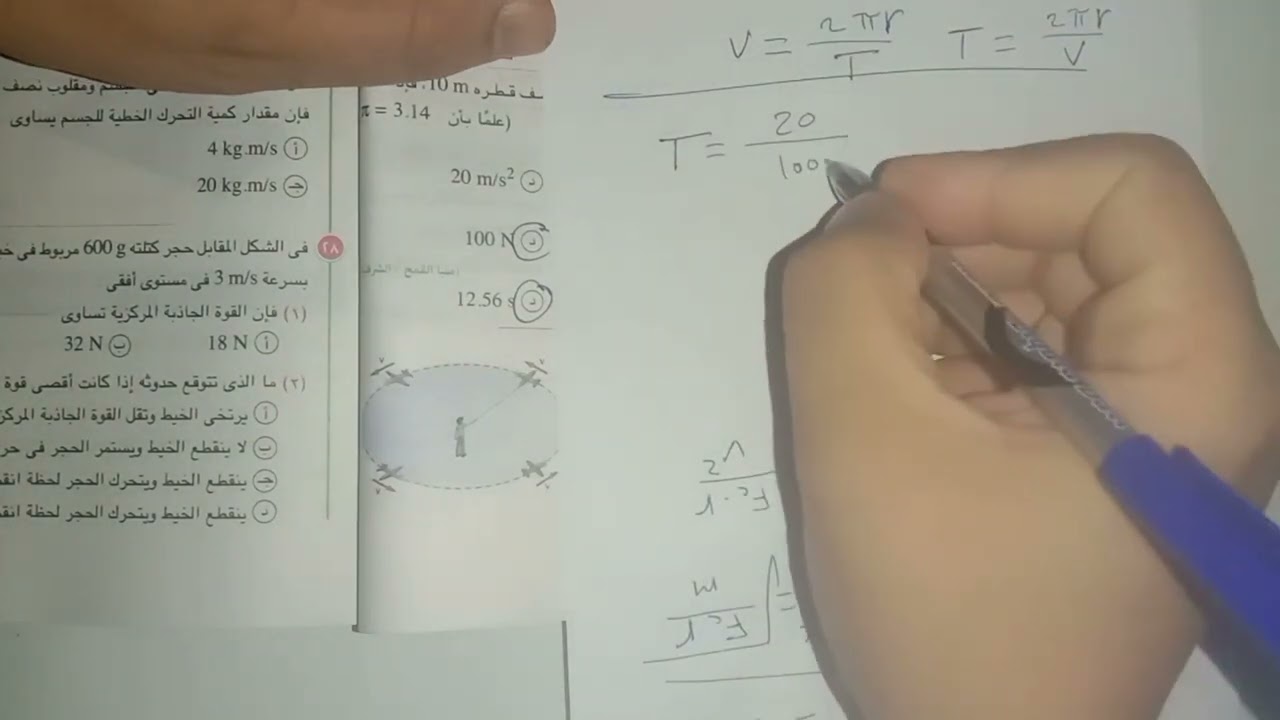 V = 2πr / T    T = 2πr / V
T = 20 / 100
ومقلوب نصف
فإن مقدار كمية التحرك الخطية للجسم يساوى
أ 4 kg.m/s
ج 20 kg.m/s
٢٨ فى الشكل المقابل حجر كتلته 600 g مربوط فى
بسرعة 3 m/s فى مستوى أفقى
(١) فإن القوة الجاذبة المركزية تساوى
أ 18 N    ب 32 N
(٢) ما الذى تتوقع حدوثه إذا كانت أقصى قوة
أ يرتخى الخيط وتقل القوة الجاذبة
ب لا ينقطع الخيط ويستمر الحجر فى
ج ينقطع الخيط ويتحرك الحجر لحظة
د ينقطع الخيط ويتحرك الحجر لحظة
قطره 10 m
(علمًا بأن π = 3.14
د 20 m/s²
د 100 N
د 12.56 s
v
v
v
v